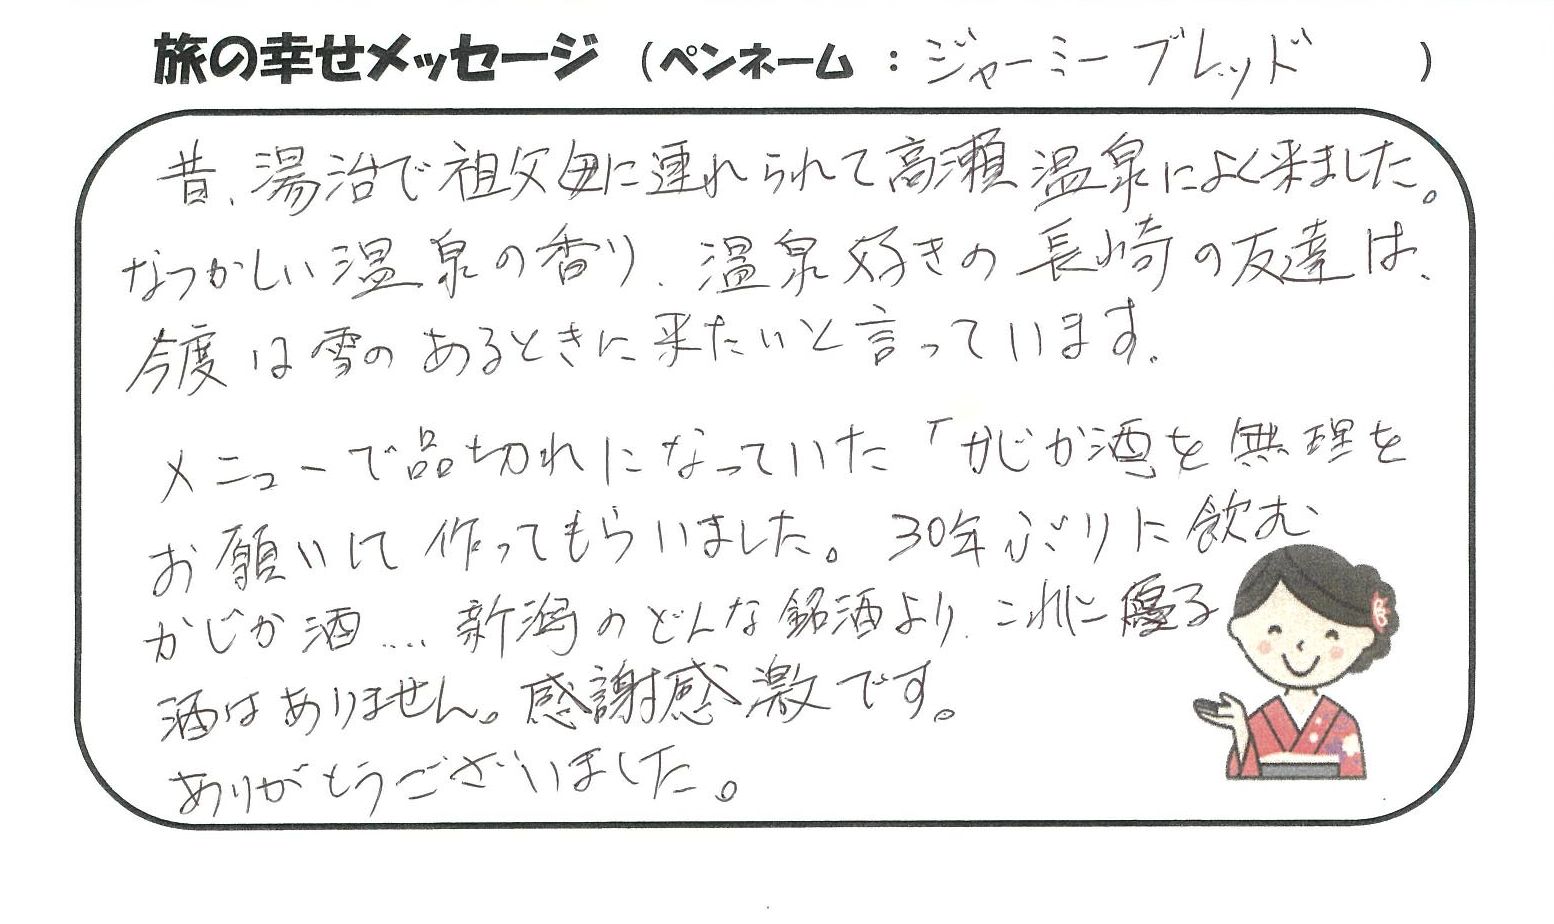 旅の幸せメッセージ (ペンネーム : ジャーミーブレッド )
昔、湯治で祖父母に連れられて高瀬温泉によく来ました。
なつかしい温泉の香り、温泉好きの長崎の友達は、
今度は雪のあるときに来たいと言っています。
メニューで品切れになっていた「かじか酒を無理を
お願いして作ってもらいました。30年ぶりに飲む
かじか酒....新潟のどんな銘酒より、これに優る
酒はありません。感謝感激です。
ありがとうございました。